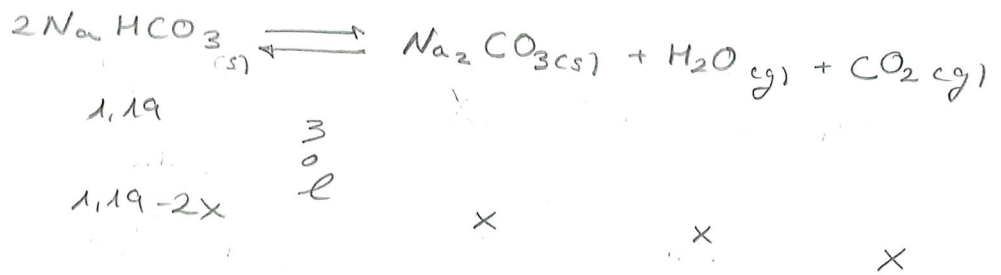 2NaHCO3(s) ⇌ Na2CO3(s) + H2O(g) + CO2(g)
1,19
mol
1,19-2x x x x